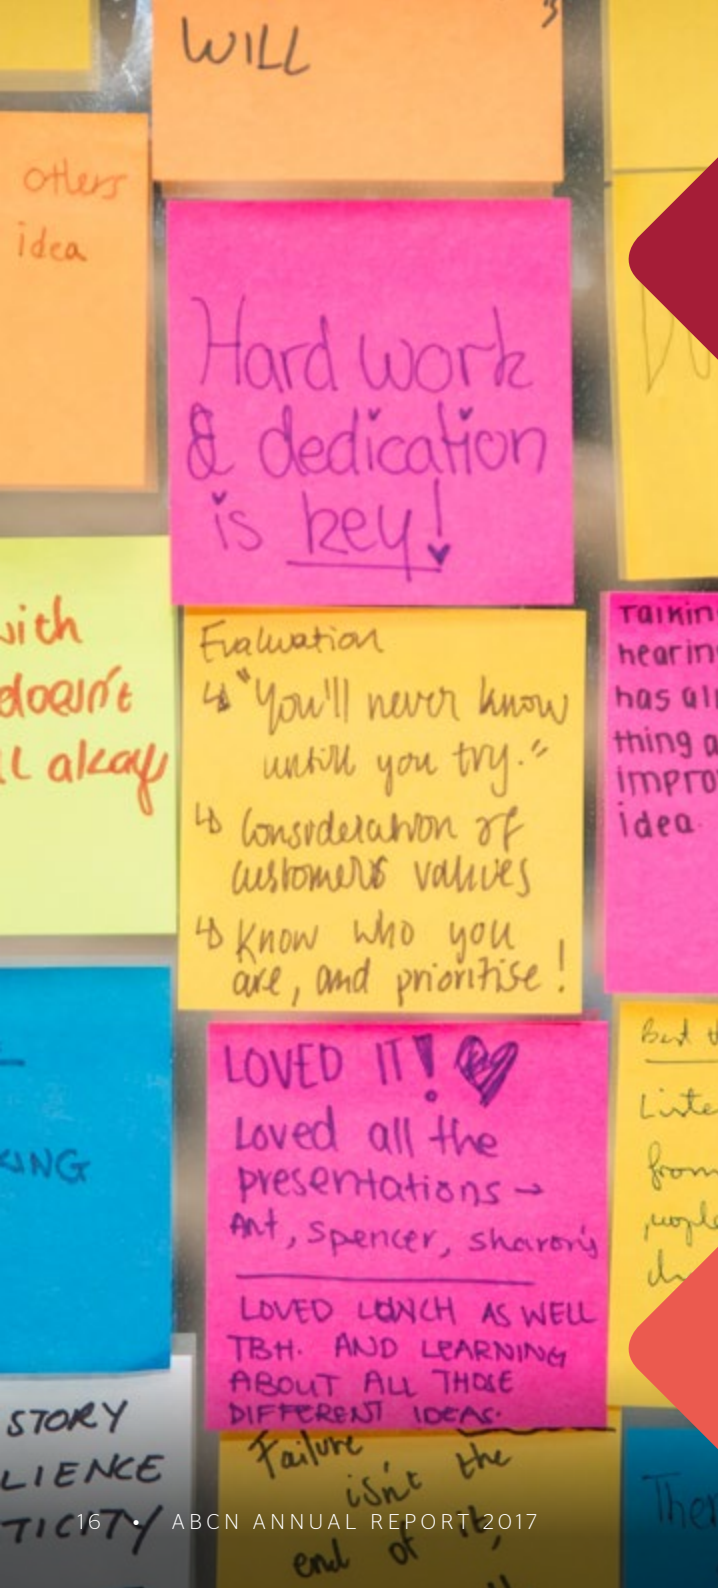 WILL
others
idea
Hard work
& dedication
is key!
with
doesn't
alkay
Evaluation
↳ "You'll never know
untill you try."
↳ Consideration of
customers values
↳ Know who you
are, and prioritise!
Talkin
hearin
has all
thing a
impro
idea.
KING
LOVED IT! ♥
Loved all the
presentations →
Ant, Spencer, sharon's
LOVED LUNCH AS WELL
TBH. AND LEARNING
ABOUT ALL THOSE
DIFFERENT IDEAS.
Best t
Liste
from
people
STORY
LIENCE
TICITY
Failure
isn't the
end of it,
Ther
16 • ABCN ANNUAL REPORT 2017